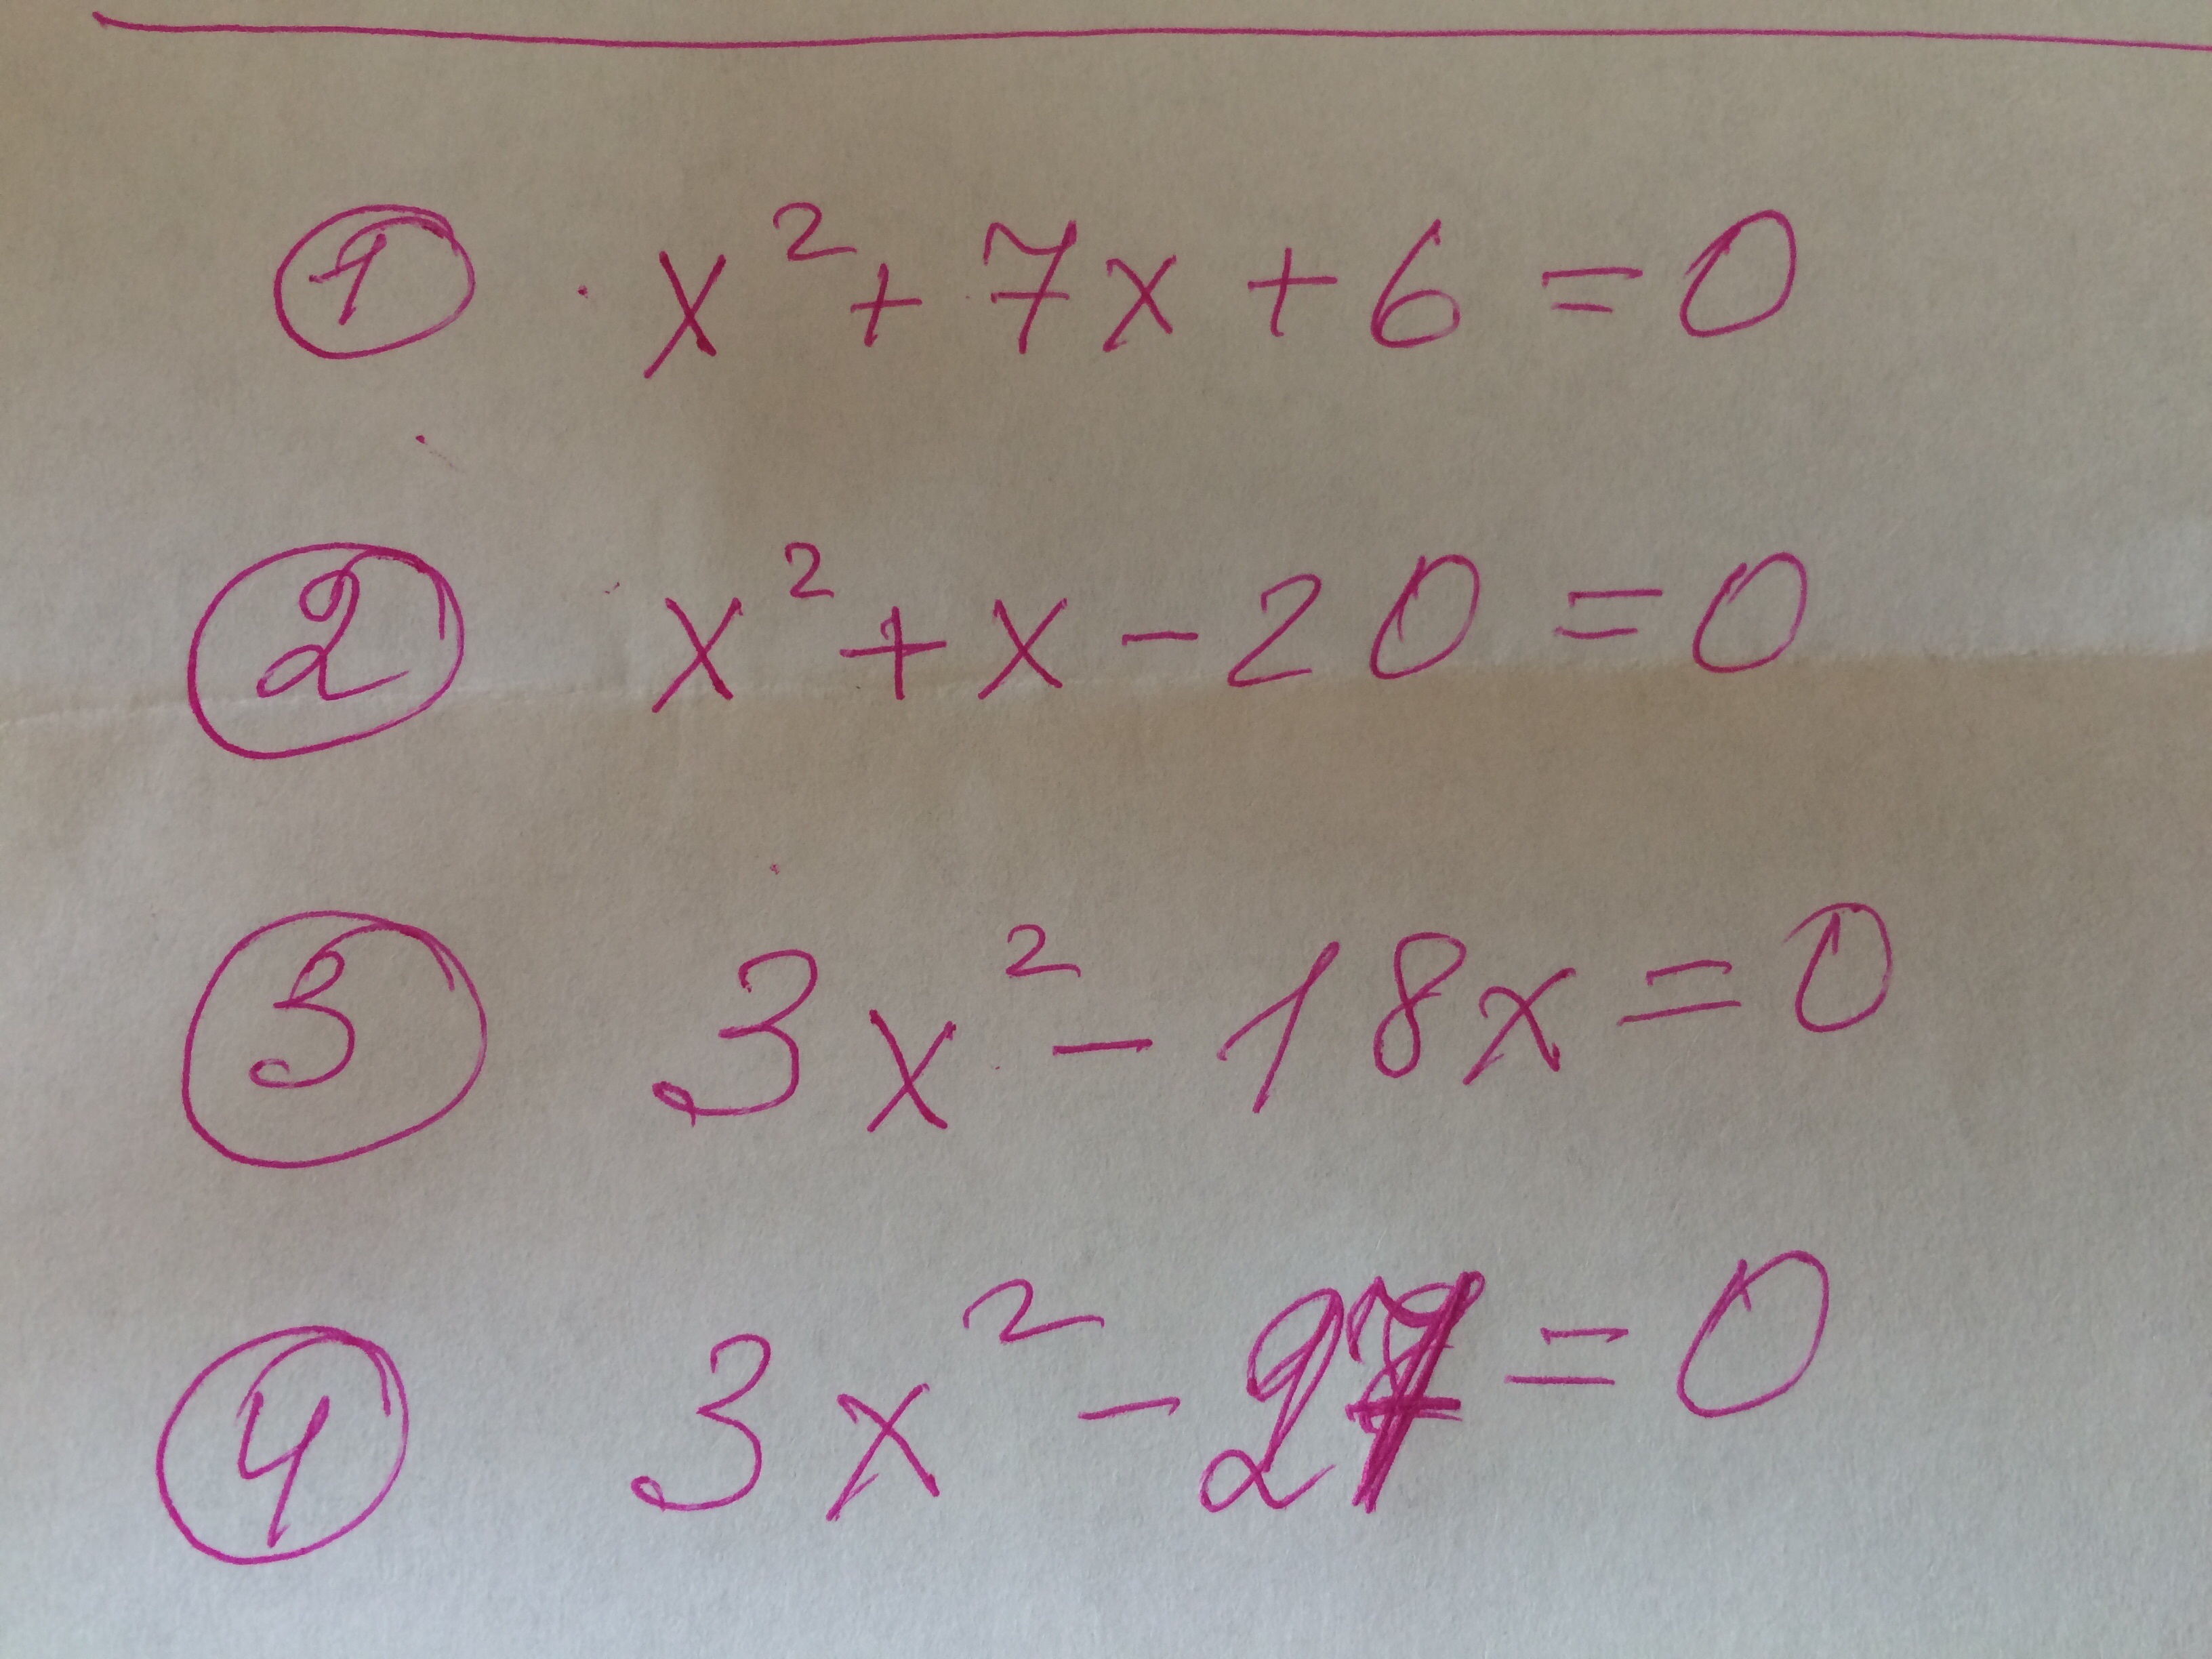 ① x² + 7x + 6 = 0
② x² + x - 20 = 0
③ 3x² - 18x = 0
④ 3x² - 27 = 0